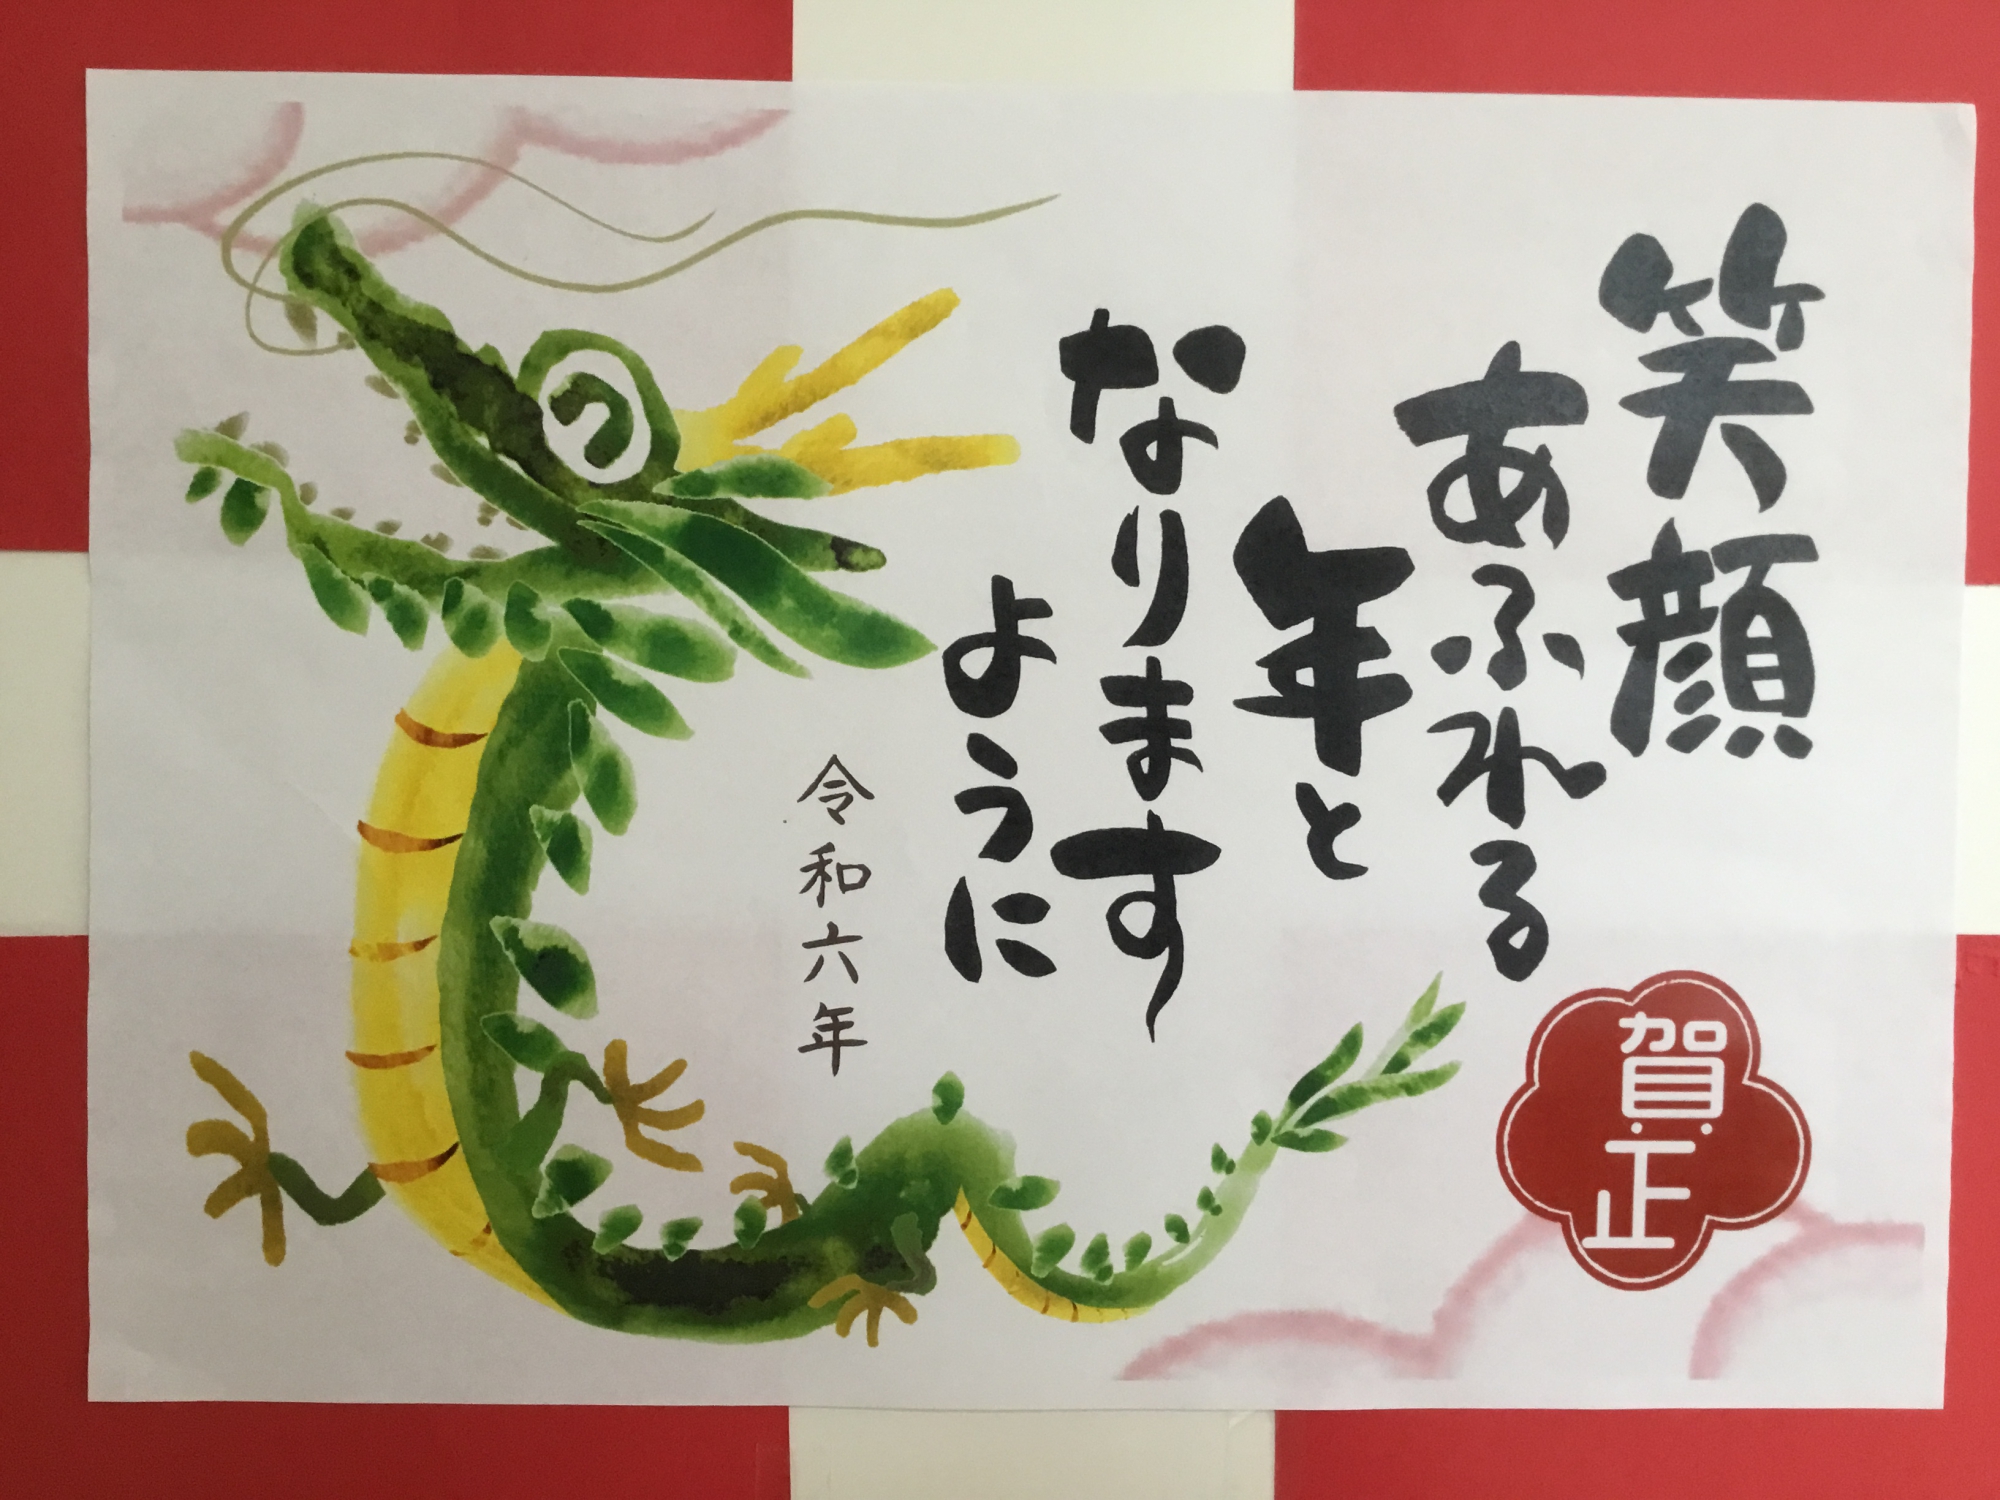 笑顔
あふれる
年と
なります
ように
令和六年
賀正